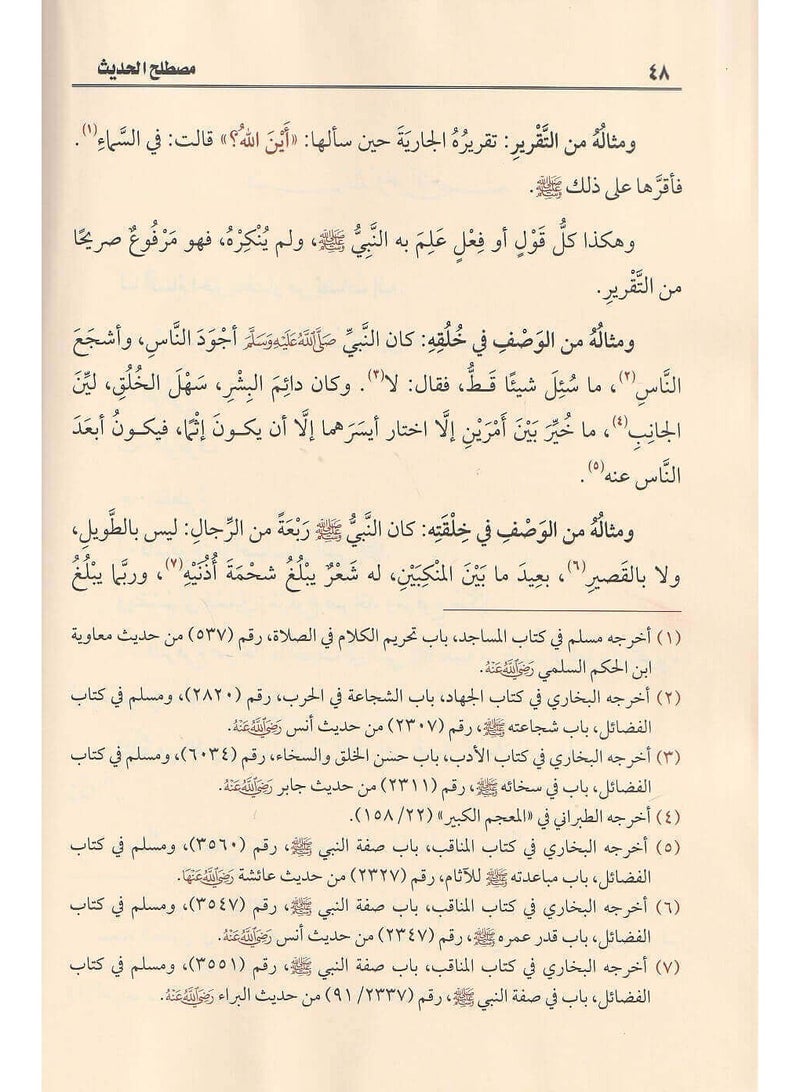 ٤٨ مصطلح الحديث
ومثالُهُ من التَّقْريرِ: تقريرُهُ الجاريَةَ حين سألها: «أَيْنَ اللهُ؟» قالت: في السَّماءِ(١).
فأقرَّها على ذلك ﷺ.
وهكذا كلُّ قَوْلٍ أو فِعْلٍ عَلِمَ به النَّبِيُّ ﷺ، ولم يُنْكِرْهُ، فهو مَرْفُوعٌ صريحًا
من التَّقْريرِ.
ومثالُهُ من الوَصْفِ في خُلُقِهِ: كان النَّبيِّ صَلَّى اللَّهُ عَلَيْهِ وَسَلَّمَ أجْوَدَ النَّاسِ، وأشجَعَ
النَّاسِ(٢)، ما سُئِلَ شيئًا قَطُّ، فقال: لا(٣). وكان دائِمَ البِشْرِ، سَهْلَ الخُلُقِ، ليِّنَ
الجانِبِ(٤)، ما خُيِّرَ بَيْنَ أَمْرَيْنِ إلَّا اختار أيسَرَهما إلَّا أن يكونَ إثْمًا، فيكونُ أبعَدَ
النَّاس عنه(٥).
ومثالُهُ من الوَصْفِ في خِلْقَتِه: كان النَّبيُّ ﷺ رَبْعَةً من الرِّجالِ: ليس بالطَّويلِ،
ولا بالقَصيرِ(٦)، بعِيدَ ما بَيْنَ المَنْكِبَيْنِ، له شَعْرٌ يبْلُغُ شحْمَةَ أُذُنَيْهِ(٧)، وربَّما يبْلُغُ
(١) أخرجه مسلم في كتاب المساجد، باب تحريم الكلام في الصلاة، رقم (٥٣٧) من حديث معاوية
ابن الحكم السلمي رَضِيَ اللَّهُ عَنْهُ.
(٢) أخرجه البخاري في كتاب الجهاد، باب الشجاعة في الحرب، رقم (٢٨٢٠)، ومسلم في كتاب
الفضائل، باب شجاعته ﷺ، رقم (٢٣٠٧) من حديث أنس رَضِيَ اللَّهُ عَنْهُ.
(٣) أخرجه البخاري في كتاب الأدب، باب حسن الخلق والسخاء، رقم (٦٠٣٤)، ومسلم في كتاب
الفضائل، باب في سخائه ﷺ، رقم (٢٣١١) من حديث جابر رَضِيَ اللَّهُ عَنْهُ.
(٤) أخرجه الطبراني في «المعجم الكبير» (٢٢/ ١٥٨).
(٥) أخرجه البخاري في كتاب المناقب، باب صفة النبي ﷺ، رقم (٣٥٦٠)، ومسلم في كتاب
الفضائل، باب مباعدته ﷺ للآثام، رقم (٢٣٢٧) من حديث عائشة رَضِيَ اللَّهُ عَنْهَا.
(٦) أخرجه البخاري في كتاب المناقب، باب صفة النبي ﷺ، رقم (٣٥٤٧)، ومسلم في كتاب
الفضائل، باب قدر عمره ﷺ، رقم (٢٣٤٧) من حديث أنس رَضِيَ اللَّهُ عَنْهُ.
(٧) أخرجه البخاري في كتاب المناقب، باب صفة النبي ﷺ، رقم (٣٥٥١)، ومسلم في كتاب
الفضائل، باب في صفة النبي ﷺ، رقم (٢٣٣٧/ ٩١) من حديث البراء رَضِيَ اللَّهُ عَنْهُ.